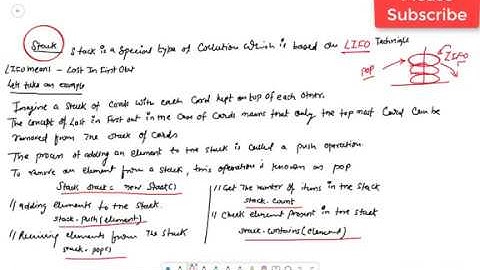 Please
Subscribe
Stack Stack is a special type of Collection which is based on LIFO Technique
LIFO means - Last In First Out
Lets take an example
LIFO
POP
Imagine a stack of Cards with each Card kept on top of each other.
The concept of Last in First out in the case of Cards means that only the top most Card can be
removed from the stack of Cards
The process of adding an element to the stack is called a push operation.
To remove an element from a stack, this operation is known as pop
Stack stack = new Stack()
// adding elements to the stack
stack.push(element)
// Removing elements from the stack
stack.pop()
// Get the number of items in the stack
stack.count
// Check element present in the stack
stack.contains(element)